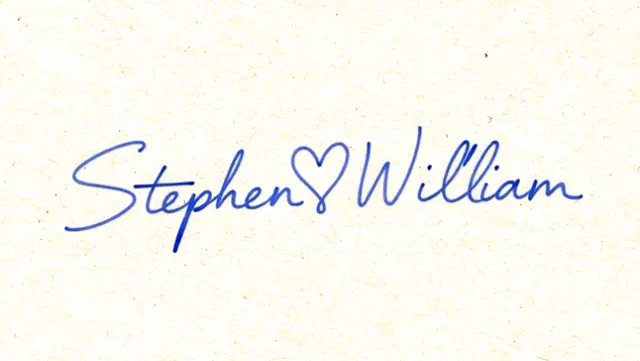 Stephen♡William